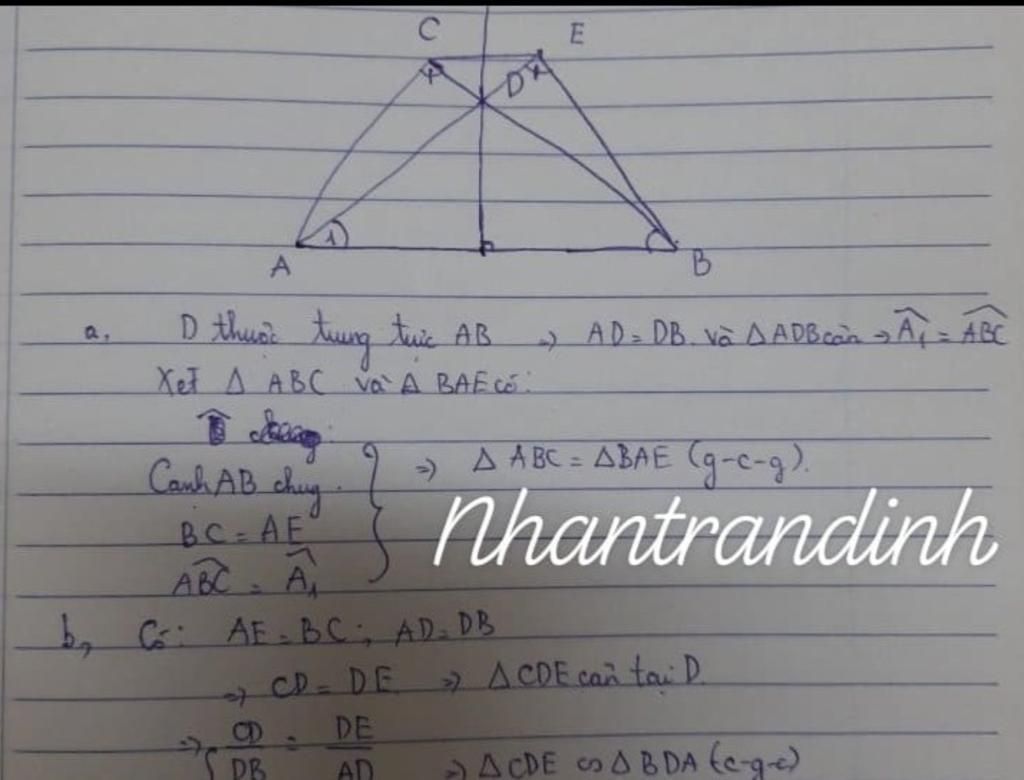 C E
D
1
A B
a, D thuộc trung trực AB => AD = DB và Δ ADB cân → Â₁ = ABC
Xét Δ ABC và Δ BAE có:
Cạnh AB chug
BC = AE
ABC = A₁
=> Δ ABC = Δ BAE (g-c-g).
Nhantrandinh
b, Có: AE = BC ; AD = DB
=> CD = DE => Δ CDE cân tại D.
=> CD/DB = DE/AD => Δ CDE ∽ Δ BDA (c-g-c)